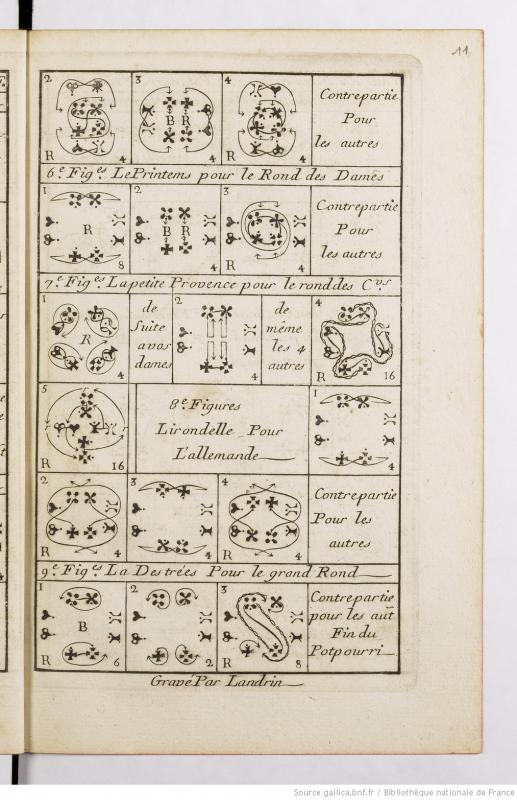 11
2 3 4
Contrepartie
Pour
les autres
B R
R 4 4 R 4
6.e Fig.es Le Printems pour le Rond des Dames
1 2 3
Contrepartie
Pour
les autres
R B R
8 4 4
7.e Fig.es La petite Provence pour le rond des C.vs
1 2 4
de
Suite
a vos
dames
de
même
les 4
autres
R
4 4 R 16
5 1
8.e Figures
Lirondelle Pour
L'allemande
R 16 4
2 3 4
Contrepartie
Pour les
autres
R 4 4 R 4
9.e Fig.es La Destrées Pour le grand Rond
1 2 3
Contrepartie
pour les aut
Fin du
Potpourri
B
R 6 2 R 8
Gravé Par Landrin
Source gallica.bnf.fr / Bibliothèque nationale de France